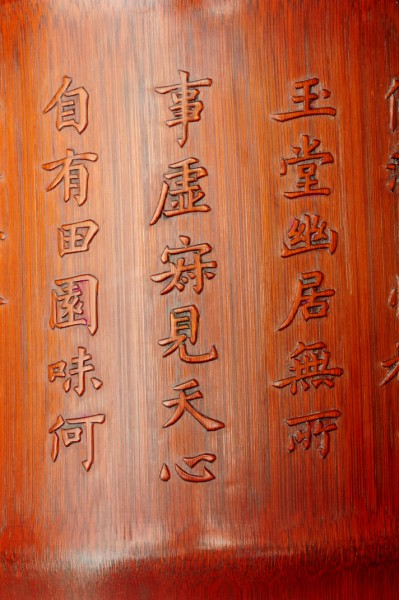 玉堂幽居無所
事虛寂見天心
自有田園味何